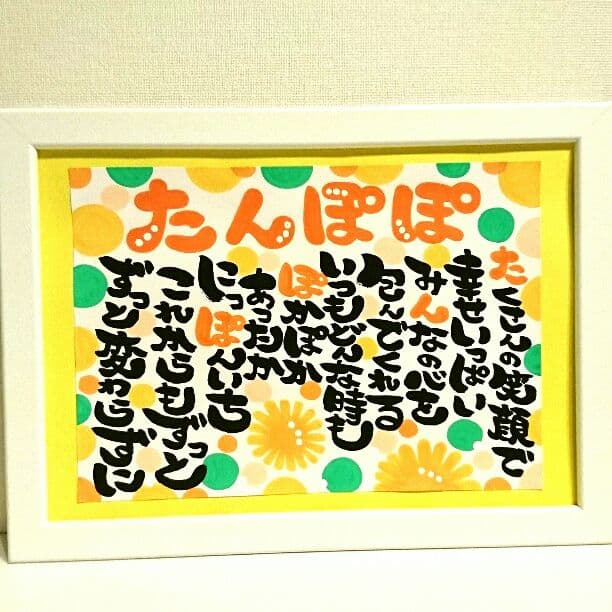 たんぽぽ
たくさんの笑顔で
幸せいっぱい
みんなの心を
包んでくれる
いつもどんな時も
ぽかぽか
あったか
にっぽんいち
これからもずっと
ずっと変わらずに